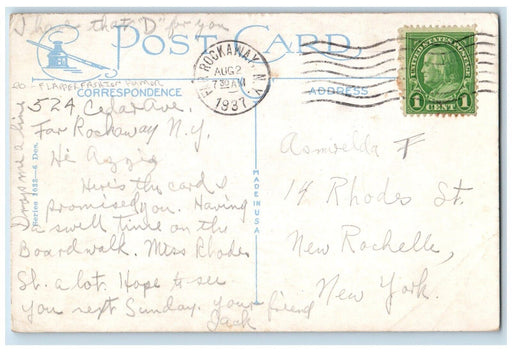 I have that "D" for you
POST CARD
CORRESPONDENCE
ADDRESS
FAR ROCKAWAY, N.Y.
AUG 2
7:30 AM
1937
UNITED STATES POSTAGE
1 CENT 1
Drop me a line
Series 1022-6 Des.
524 Cedar Ave.
Far Rockaway N.Y.
Hi
Here's the card I
promised you. Having
a swell time on the
Boardwalk. Miss Rhodes
St. a lot. Hope to see
you next Sunday. Your friend
Jack
MADE IN USA
F
14 Rhodes St.
New Rochelle,
New York.